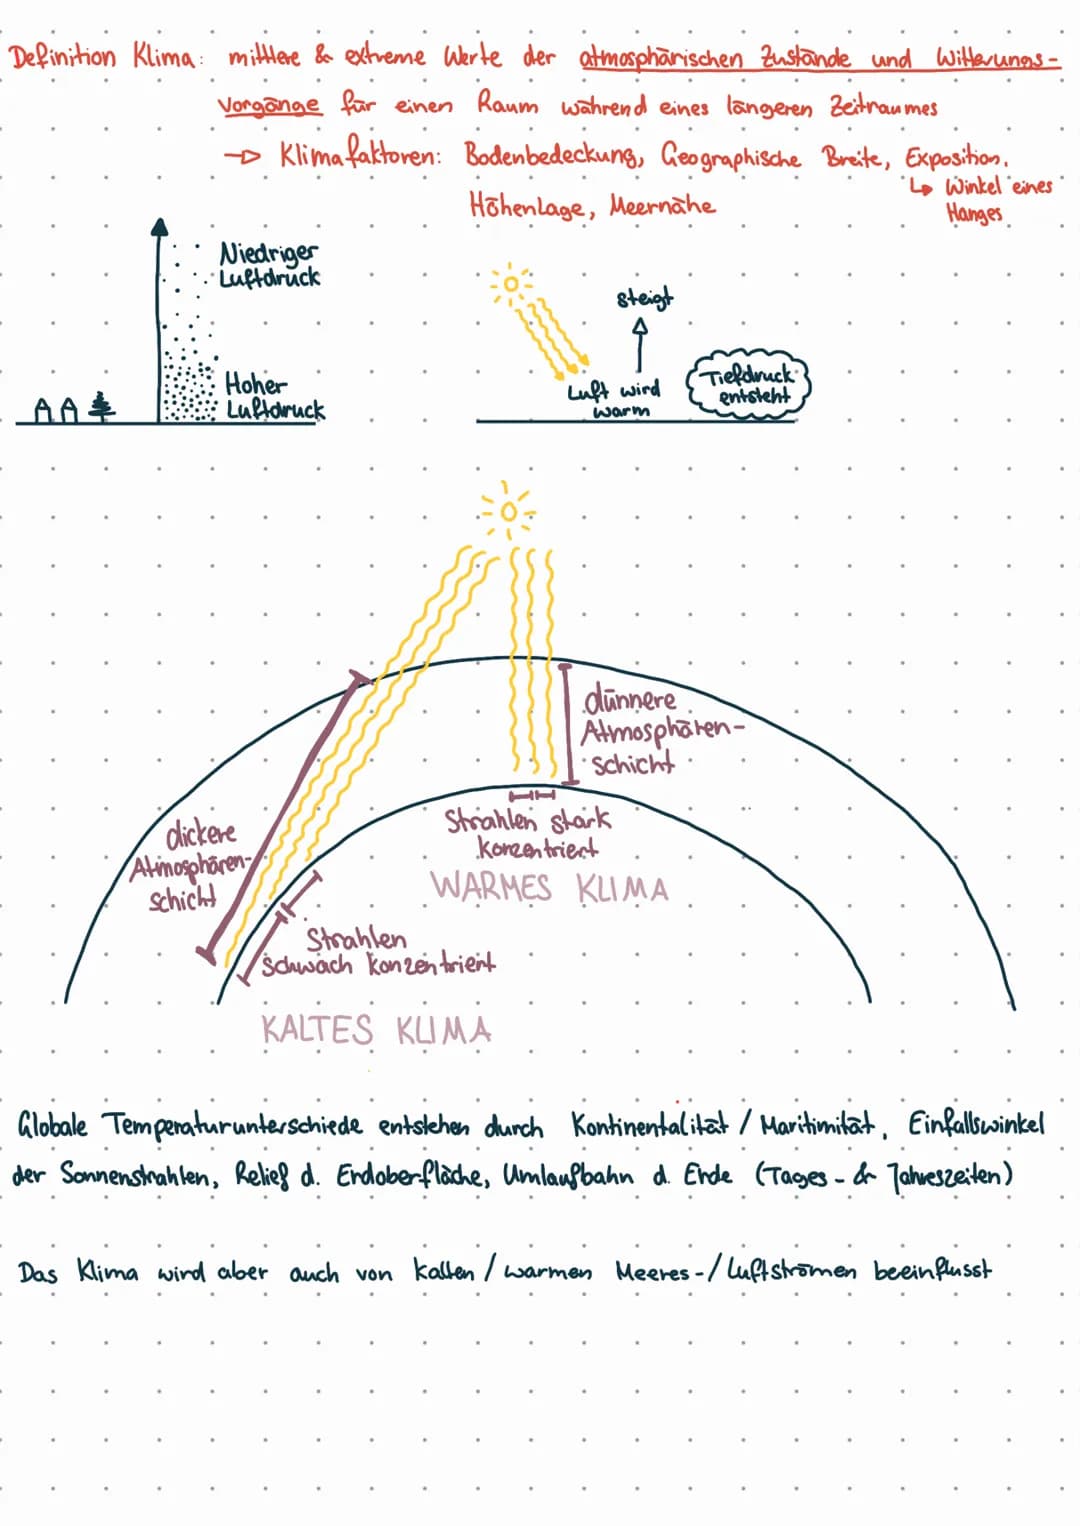 Definition Klima: mittlere & extreme Werte der atmosphärischen Zustände und Witterungs-
vorgänge für einen Raum während eines längeren Zeitraumes
→ Klimafaktoren: Bodenbedeckung, Geographische Breite, Exposition,
↳ Winkel eines
Hanges
Höhenlage, Meernähe
Niedriger
Luftdruck
Hoher
Luftdruck
steigt
Luft wird
warm
Tiefdruck
entsteht
dünnere
Atmosphären-
schicht
Strahlen stark
konzentriert
WARMES KLIMA
dickere
Atmosphären-
schicht
Strahlen
schwach konzentriert
KALTES KLIMA
Globale Temperaturunterschiede entstehen durch Kontinentalität / Maritimität, Einfallswinkel
der Sonnenstrahlen, Relief d. Erdoberfläche, Umlaufbahn d. Erde (Tages- & Jahreszeiten)
Das Klima wird aber auch von kalten / warmen Meeres-/Luftströmen beeinflusst